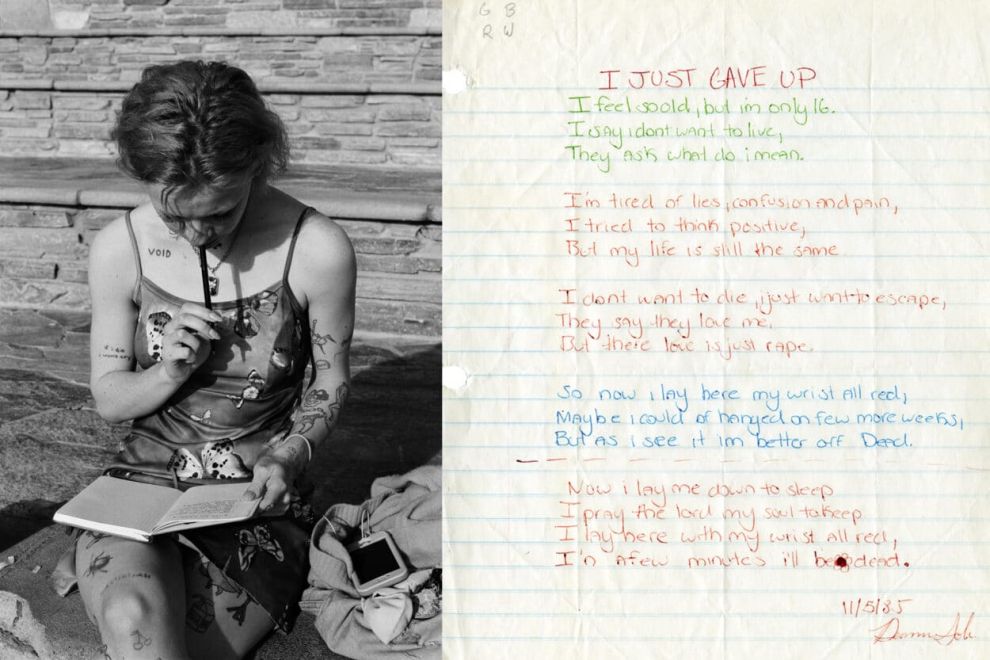 VOID
G B
R W
I JUST GAVE UP
I feel so old, but im only 16.
I say i dont want to live,
They Ask what do i mean.
I'm tired of lies, confusion and pain,
I tried to think positive,
But my life is still the same
I dont want to die, i just want to escape,
They say they love me,
But there love is just rape.
So now i lay here my wrist All red,
Maybe i could of hanged on few more weeks,
But As i see it im better off Dead.
Now i lay me down to sleep
I pray the lord my soul to keep
I lay here with my wrist All red,
I'n A few minutes i'll be dead.
11/5/85